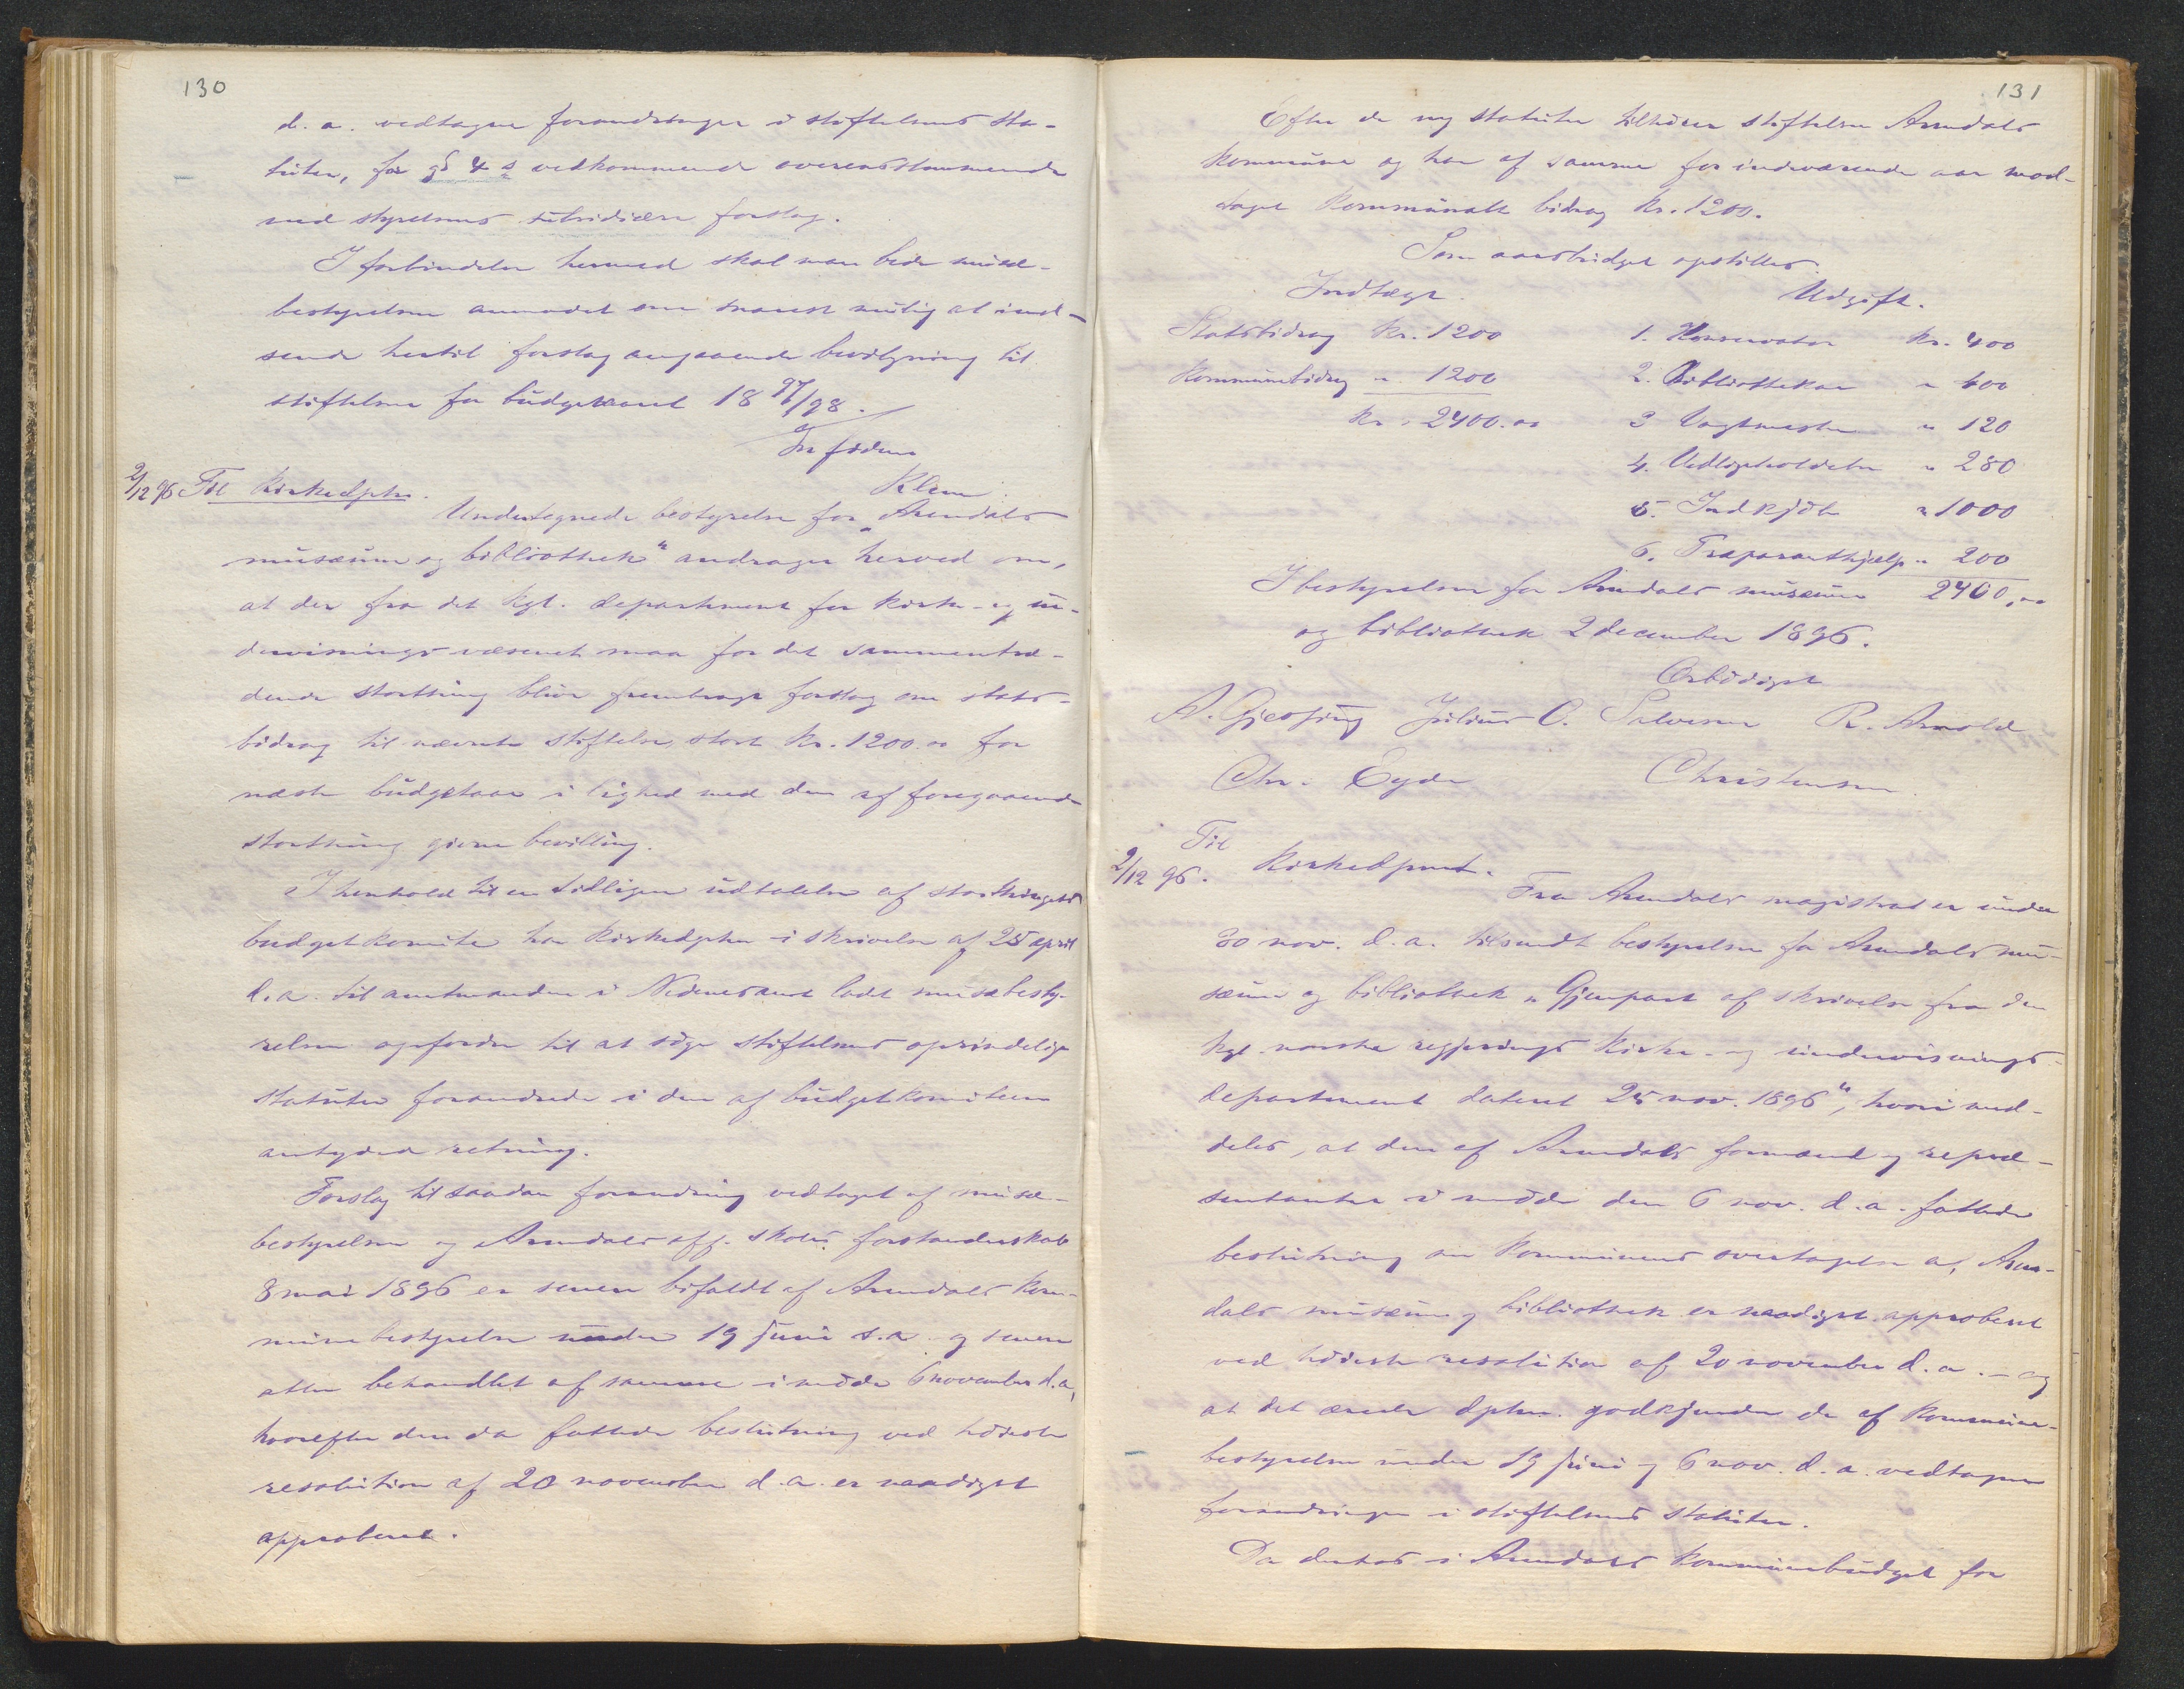 130
d. a. vedtagne forandringer i stiftelsens sta-
tuter, for § 4 s vedkommende overensstemmende
med styrelsens subsidiære forslag.
I forbindelse hermed skal man bede musæ-
bestyrelsen anmodet om snarest mulig at ind-
sende hertil forslag angaaende bevilgning til
stiftelsen for budgetaaret 18 97/98.
In fidem
Klem
2/12 96 Til Kirkedpts.
Undertegnede bestyrelse for „Arendals
musæum og bibliothek" andrager herved om,
at der fra det kgl. departement for kirke- og un-
dervisningsvæsenet maa for det sammentræ-
dende storthing blive fremtraget forslag om stats-
bidrag til nævnte stiftelse stort kr. 1200.00 for
næste budgetaar i lighed med den af foregaaende
storthing givne bevilling.
I henhold til en tidligere udtalelse af storthingets
budgetkomite har kirkedpter i skrivelse af 25 april
d. a. til amtmanden i Nedenes amt ladet musæbesty-
relsen opfordre til at søge stiftelsens oprindelige
statuter forandrede i den af budgetkomiteen
antydede retning.
Forslag til saadan forandring vedtaget af musæ-
bestyrelsen og Arendals off. skoles forstanderskab
8 mai 1896 er senere bifaldt af Arendals kom-
munebestyrelse under 19 juni s. a. og senere
atter behandlet af samme i møde 6 november d. a,
hvorefter den da fattede beslutning ved høieste
resolution af 20 november d. a. er naadigst
approberet.
131
Efter de ny statuter tilhører stiftelsen Arendals
kommune og har af samme for indeværende aar mod-
taget kommunalt bidrag kr. 1200.
Som aarsbudget opstilles:
Indtægt. Udgift.
Statsbidrag kr. 1200 1. Konservator kr. 400
Kommunebidrag " 1200 2. Bibliothekar " 400
kr. 2400.00 3 Vagtmester " 120
4. Vedligeholdelse " 280
5. Indkjøb " 1000
6. Præparanthjælp " 200
I bestyrelsen for Arendals musæum 2400,00
og bibliothek 2 december 1896.
Ærbødigst
A. Gjessing Julius O. Salvesen R. Arnold
Chr. Eyde Christensen
Til
2/12 96. Kirkedpmt.
Fra Arendals magistrat er under
30 nov. d. a. tilsendt bestyrelsen for Arendals mu-
sæum og bibliothek „Gjenpart af skrivelse fra den
kgl. norske regjerings kirke- og undervisnings-
departement dateret 25 nov. 1896", hvori med-
deles, at den af Arendals formænd og repræ-
sentanter i møde den 6 nov. d. a. fattede
beslutning om kommunens overtagelse af Aren-
dals musæum og bibliothek er naadigst approberet
ved høieste resolution af 20 november d. a. – og
at det ærede dptm. godkjender de af kommune-
bestyrelsen under 19 juni og 6 nov. d. a. vedtagne
forandringer i stiftelsens statuter.
Da derhos i Arendals kommunebudget for